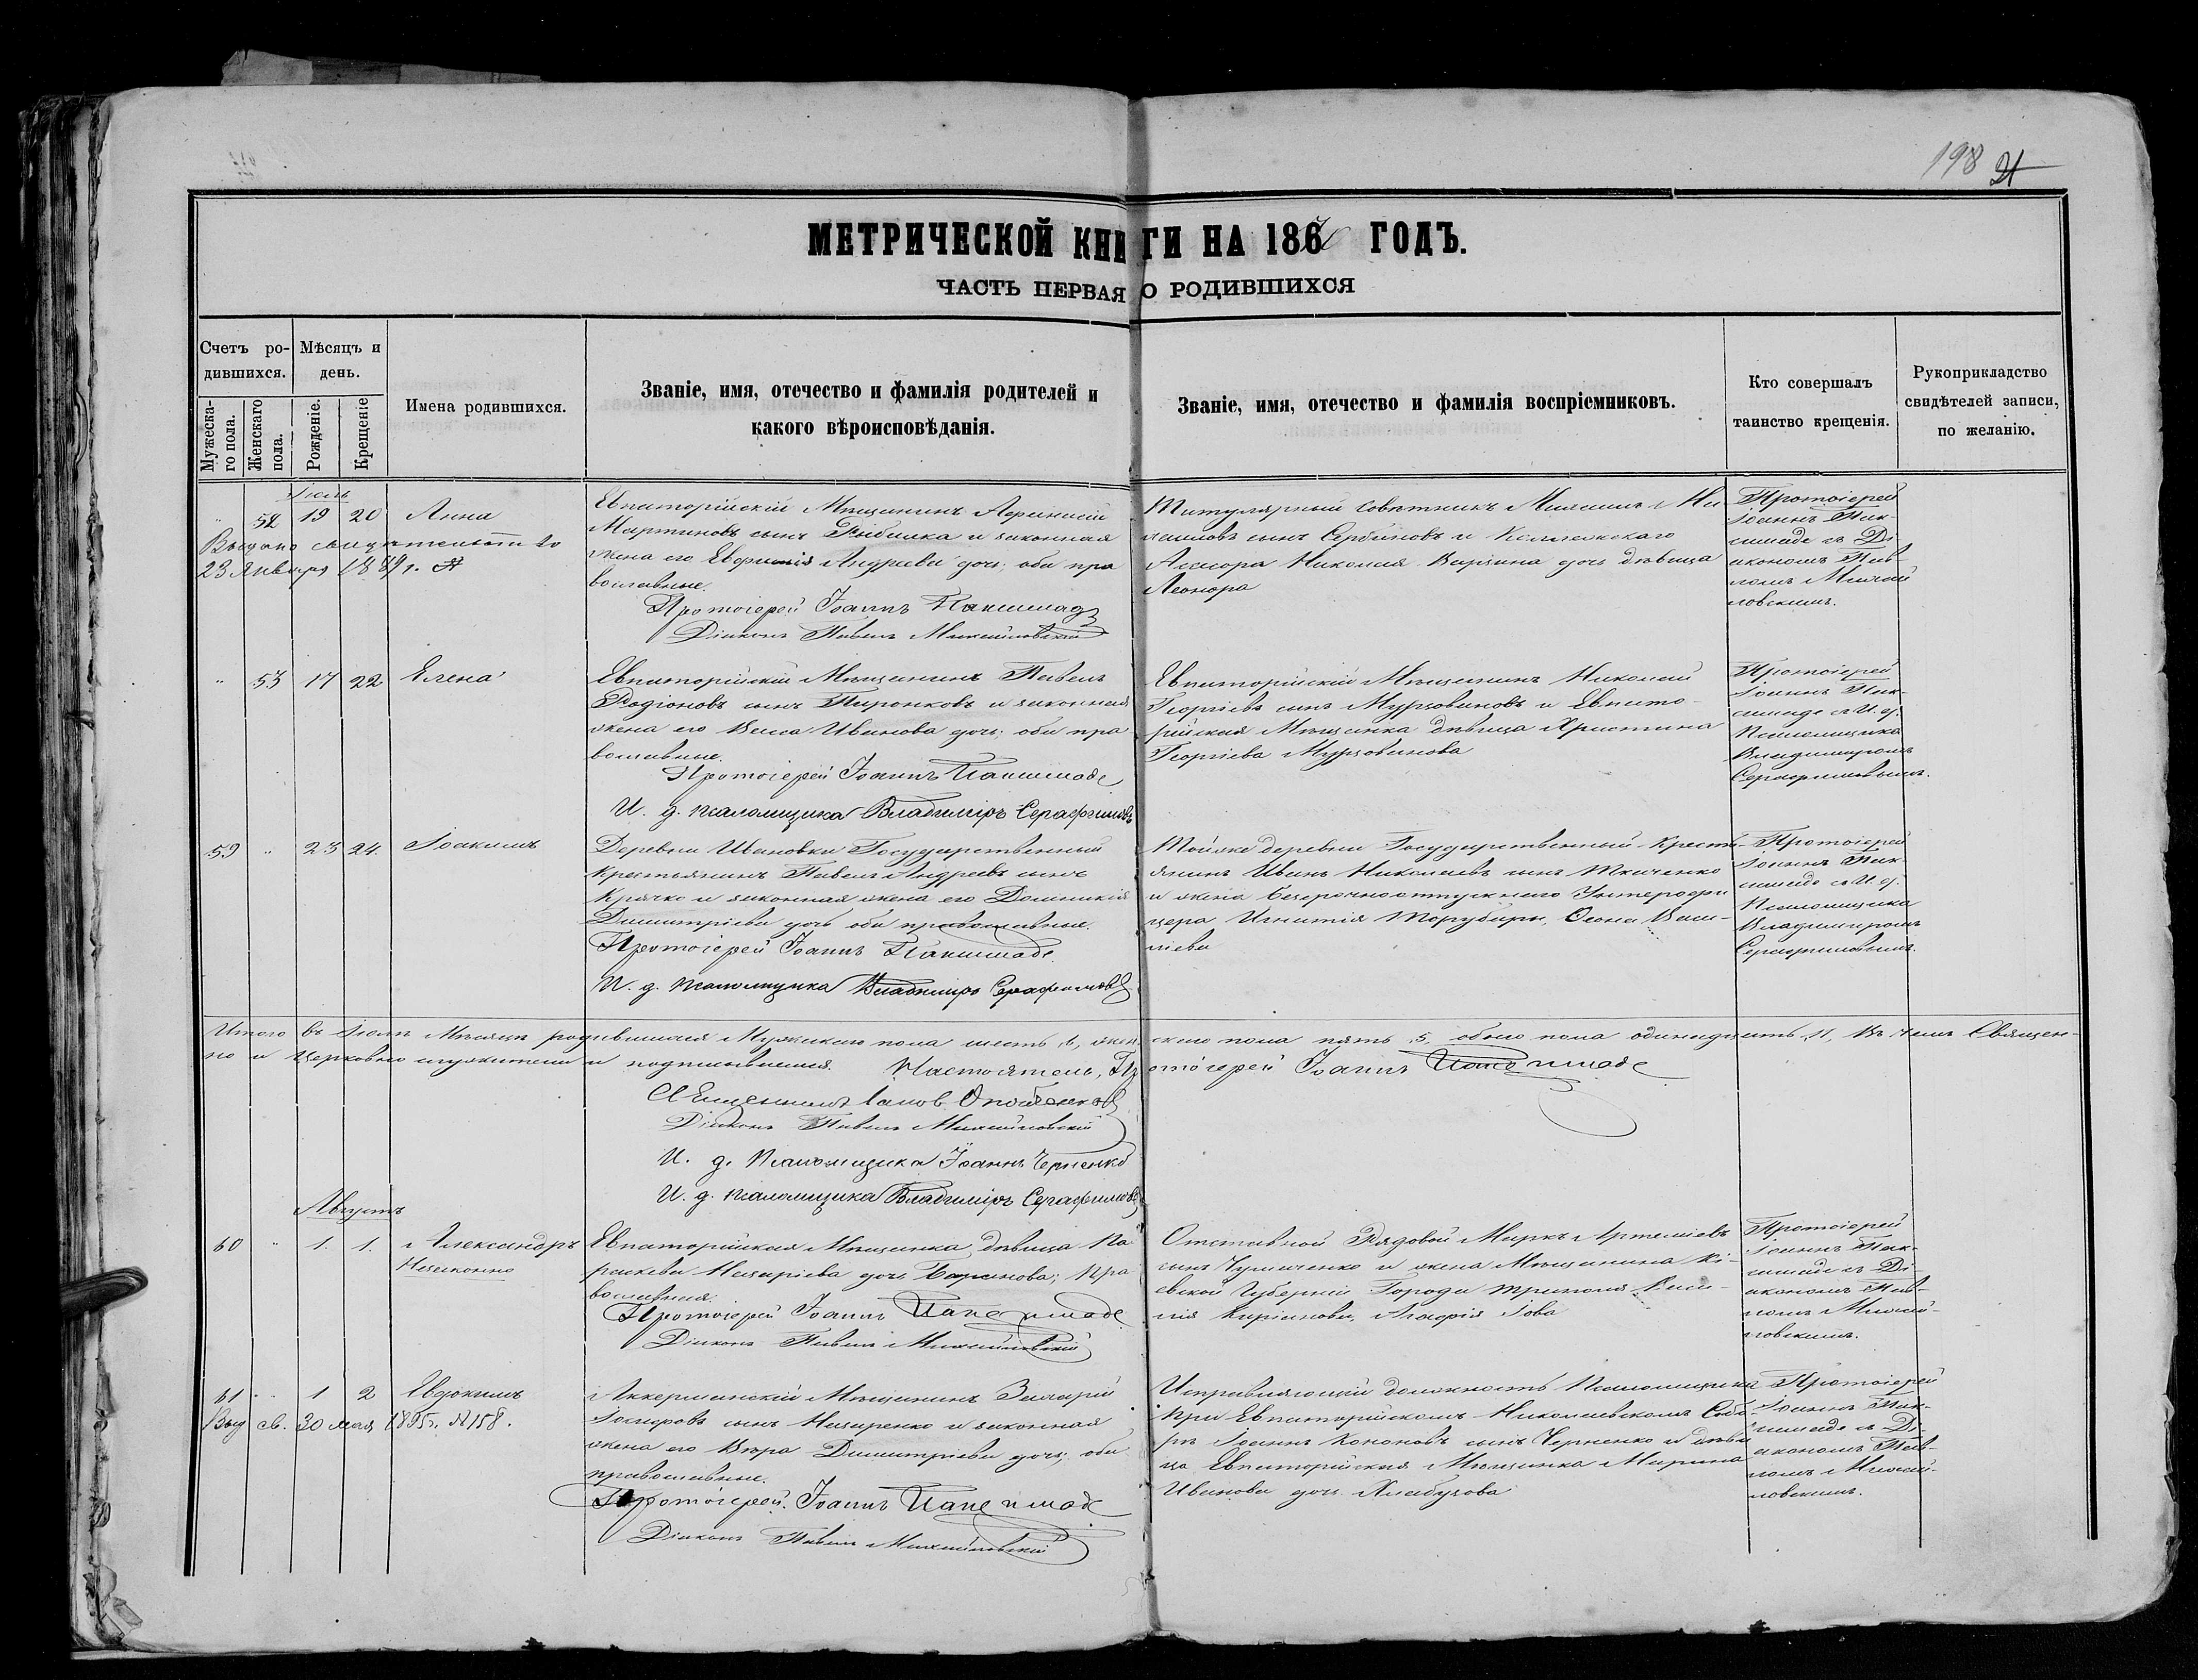 198 21
МЕТРИЧЕСКОЙ КНИГИ НА 1870 ГОДЪ.
ЧАСТЬ ПЕРВАЯ О РОДИВШИХСЯ
Счетъ ро-
дившихся.
Мужеска-
го пола.
Женскаго
пола.
Мѣсяцъ и
день.
Рожденіе.
Крещеніе
Имена родившихся.
Званіе, имя, отечество и фамилія родителей и
какого вѣроисповѣданія.
Званіе, имя, отечество и фамилія воспріемниковъ.
Кто совершалъ
таинство крещенія.
Рукоприкладство
свидѣтелей записи,
по желанію.
Іюль
" 52 19 20 Анна
Выдано свидѣтельство
23 Января 1889 г.
Евпаторійскій Мѣщанинъ
Мартиновъ сынъ Рыбалка и законная
жена его Евфимія Андреева дочь; оба пра
вославные.
Протоіерей Іоаннъ Пакшмадз
Діаконъ Павелъ Михайловскій
Титулярный Совѣтникъ Михаилъ Ми
хаиловъ сынъ Сербиновъ и Коллежскаго
Ассесора Николая Варзина дочь дѣвица
Леонора
Протоіерей
Іоаннъ Пак-
шмаде съ Ді
акономъ Пав-
ломъ Михай
ловскимъ.
" 53 17 22 Елена
Евпаторійскій Мѣщанинъ Павелъ
Родіоновъ сынъ Пиронковъ и законная
жена его Васса Иванова дочь; оба пра
вославные.
Протоіерей Іоаннъ Пакшмаде
И. д. псаломщика Владиміръ Серафимовъ
Евпаторійскій Мѣщанинъ Николай
Георгіевъ сынъ Мурзовановъ и Евпато-
рійская Мѣщанка дѣвица Христина
Георгіева Мурзованова
Протоіерей
Іоаннъ Пак-
шмаде съ И. д.
Псаломщика
Владимиромъ
Серафимовымъ.
59 " 23 24. Іоакимъ
Деревни Ивановки Государственный
Крестьянинъ Павелъ Андреевъ сынъ
Крячко и законная жена его Домникія
Димитріева дочь оба православные.
Протоіерей Іоаннъ Пакшмаде.
И. д. псаломщика Владиміръ Серафимовъ
Тойже деревни Государственный Кресть-
янинъ Иванъ Николаевъ сынъ Ткаченко
и жена безсрочноотпускнаго Унтерофи
цера Игнатія Торубары, Ѳеона Васи-
ліева
Протоіерей
Іоаннъ Пак-
шмаде съ И. д.
Псаломщика
Владимиромъ
Серафимовымъ.
Итого въ Іюлѣ Мѣсяцѣ родившихся Мужскаго пола шесть 6, женскаго пола пять 5, обоего пола одинадцать 11, Въ чемъ Священ-
но и Церковно служители и подписываемся. Настоятель, Протоіерей Іоаннъ Пакшмаде
Священникъ Іаковъ
Діаконъ Павелъ Михайловскій
И. д. Псаломщика Іоаннъ Черненко
И. д. псаломщика Владиміръ Серафимовъ
Августъ
60 " 1. 1. Александръ
Незаконно
Евпаторійская Мѣщанка, дѣвица Па
раскева Назаріева дочь Баранова; Пра
вославная.
Протоіерей Іоаннъ Пакшмаде
Діаконъ Павелъ Михайловскій
Отставной Рядовой Маркъ Артеміевъ
сынъ Чумаченко и жена Мѣщанина Кі-
евской Губерніи Города Триполя Васи-
лія Киріанова, Агафія Іова
Протоіерей
Іоаннъ Пак-
шмаде съ Ді-
акономъ Пав-
ломъ Михай-
ловскимъ.
61 " 1 2 Евдокимъ
Выд св. 30 мая 1895 г. № 158.
Аккерманскій Мѣщанинъ Захарій
Іосифовъ сынъ Назаренко и законная
жена его Вѣра Димитріева дочь; оба
православные.
Протоіерей Іоаннъ Пакшмаде
Діаконъ Павелъ Михайловскій
Исправляющій должность Псаломщика
при Евпаторійскомъ Николаевскомъ Собо-
рѣ Іоаннъ Кононовъ сынъ Черненко и дѣви
ца Евпаторійская Мѣщанка Марина
Иванова дочь Хлабузова
Протоіерей
Іоаннъ Пак-
шмаде съ Ді-
акономъ Пав-
ломъ Михай-
ловскимъ.